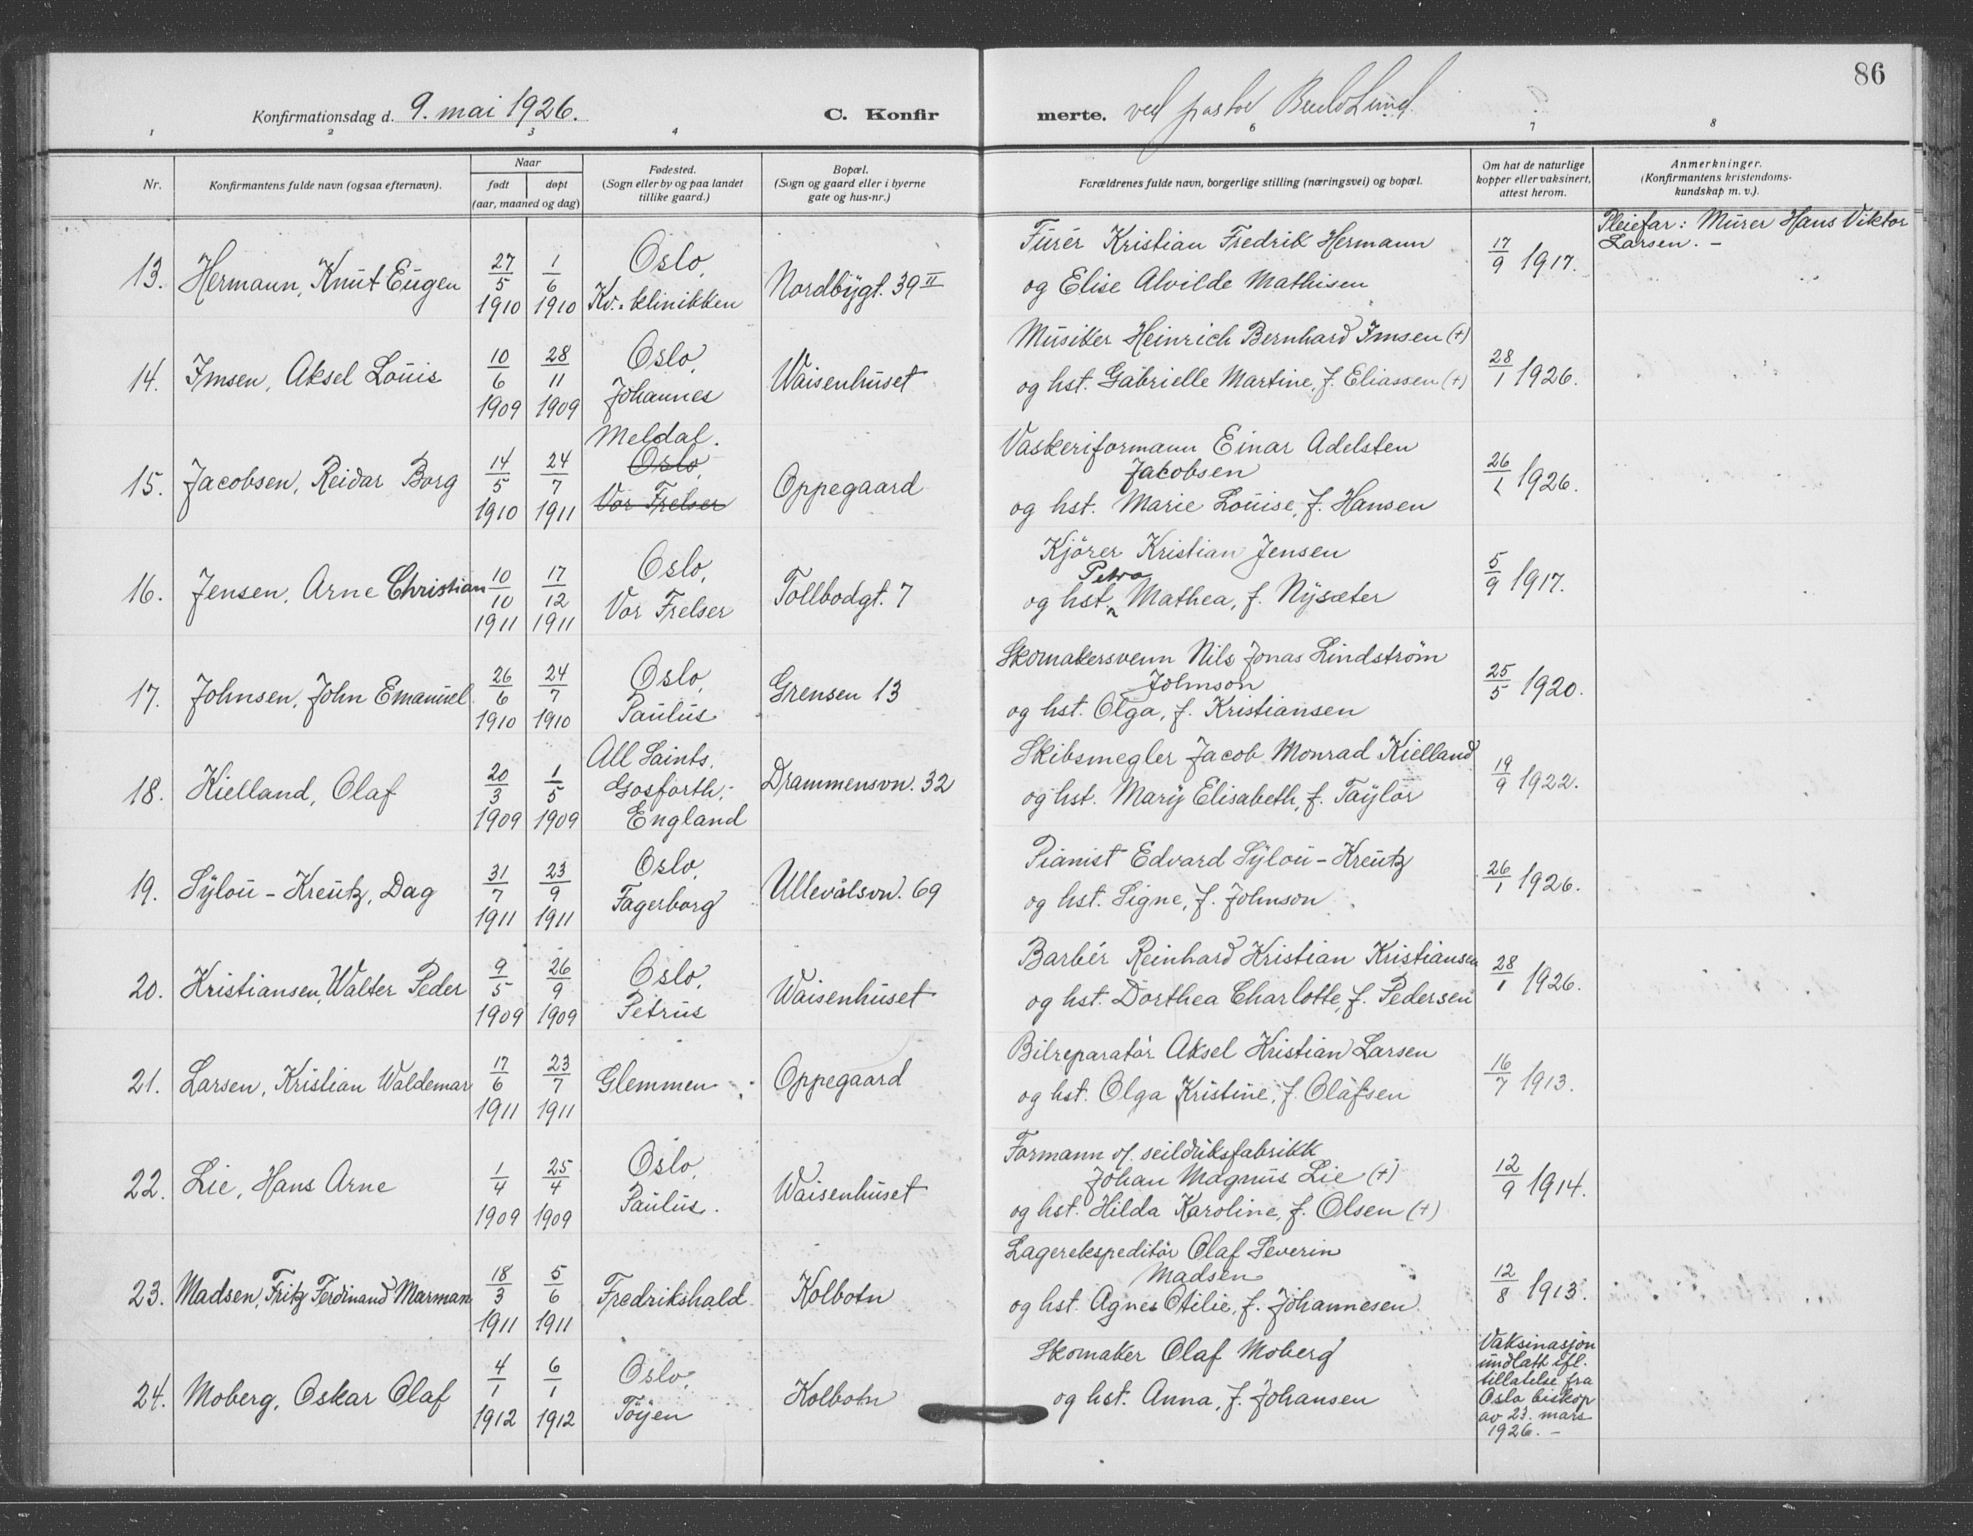 86
Konfirmationsdag d. 9. mai 1926.
C. Konfirmerte. ved pastor Lund
1 2 3 4 6 7 8
Nr.
Konfirmantens fulde navn (ogsaa efternavn).
Naar
født
døpt
(aar, maaned og dag)
Fødested.
(Sogn eller by og paa landet
tillike gaard.)
Bopæl.
(Sogn og gaard eller i byerne
gate og hus-nr.)
Forældrenes fulde navn, borgerlige stilling (næringsvei) og bopæl.
Om hat de naturlige
kopper eller vaksinert,
attest herom.
Anmerkninger.
(Konfirmantens kristendoms-
kundskap m. v.).
13. Hermann, Knut Eugen
27/5 1910
1/6 1910
Oslo,
Kv.-klinikken
Nordbygt. 39 II
Furér Kristian Fredrik Hermann
og Elise Alvilde Mathisen
17/9 1917.
Pleiefar: Murer Hans Viktor
Larsen. –
14. Imsen, Aksel Louis
10/6 1909
28/11 1909
Oslo,
Johannes
Waisenhuset
Musiker Heinrich Bernhard Imsen (+)
og hst. Gabrielle Martine, f. Eliassen (+)
28/1 1926.
15. Jacobsen, Reidar Borg
14/5 1910
24/7 1911
Meldal.
Oslo,
Vor Frelser
Oppegaard
Vaskeriformann Einar Adelsten
Jacobsen
og hst. Marie Louise, f. Hansen
26/1 1926.
16. Jensen, Arne Christian
10/10 1911
17/12 1911
Oslo,
Vor Frelser
Tollbodgt. 7
Kjører Kristian Jensen
Petra
og hst. Mathea, f. Nysæter
5/9 1917.
17. Johnsen, John Emanuel
26/6 1910
24/7 1910
Oslo,
Paulus
Grensen 13
Skomakersvenn Nils Jonas Lindstrøm
Johnson
og hst. Olga, f. Kristiansen
25/5 1920.
18. Kielland, Olaf
20/3 1909
1/5 1909
All Saints,
Gosforth,
England
Drammensvn. 32
Skibsmegler Jacob Monrad Kielland
og hst. Mary Elisabeth, f. Taylor
19/9 1922.
19. Sylou-Kreutz, Dag
31/7 1911
23/9 1911
Oslo,
Fagerborg
Ullevålsvn. 69
Pianist Edvard Sylou-Kreutz
og hst. Signe, f. Johnson
26/1 1926.
20. Kristiansen, Walter Peder
9/5 1909
26/9 1909
Oslo,
Petrus
Waisenhuset
Barbér Reinhard Kristian Kristiansen
og hst. Dorthea Charlotte, f. Pedersen
28/1 1926.
21. Larsen, Kristian Waldemar
17/6 1911
23/7 1911
Glemmen
Oppegaard
Bilreparatør Aksel Kristian Larsen
og hst. Olga Kristine, f. Olafsen
16/7 1913.
22. Lie, Hans Arne
1/4 1909
25/4 1909
Oslo,
Paulus.
Waisenhuset
Formann v/ seilduksfabrikk
Johan Magnus Lie (+)
og hst. Hilda Karoline, f. Olsen (+)
12/9 1914.
23. Madsen, Fritz Ferdinand Marman
18/3 1911
5/6 1911
Fredrikshald
Kolbotn
Lagerekspeditør Olaf Severin
Madsen
og hst. Agnes Otilie, f. Johannesen
12/8 1913.
24. Moberg, Oskar Olaf
4/1 1912
6/1 1912
Oslo,
Tøyen
Kolbotn
Skomaker Olaf Moberg
og hst. Anna, f. Johansen
Vaksinasjon
undlatt ifl.
tillatelse fra
Oslo biskop
av 23. mars
1926. –